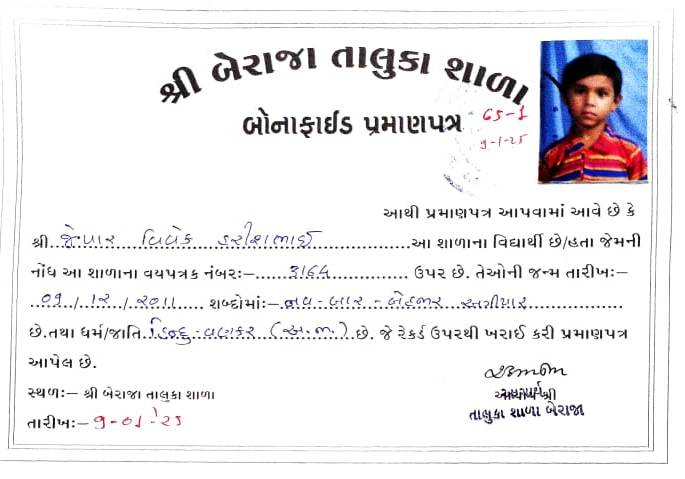 શ્રી બેરાજા તાલુકા શાળા
બોનાફાઈડ પ્રમાણપત્ર
65-1
9-1-25
આથી પ્રમાણપત્ર આપવામાં આવે છે કે
શ્રી જેપાર વિવેક હરીશભાઈ આ શાળાના વિદ્યાર્થી છે/હતા જેમની
નોંધ આ શાળાના વયપત્રક નંબર:–....૩૧૬૬.... ઉપર છે. તેઓની જન્મ તારીખ:–
૦૧/૧૨/૨૦૧૧ શબ્દોમાં:– બાર - બેહજાર અગીયાર
છે.તથા ધર્મ/જાતિ હિન્દુ-વણકર (અ.જા.) છે. જે રેકર્ડ ઉપરથી ખરાઈ કરી પ્રમાણપત્ર
આપેલ છે.
સ્થળ:– શ્રી બેરાજા તાલુકા શાળા
આચાર્ય શ્રી
તારીખ:– 9-01-25
તાલુકા શાળા બેરાજા